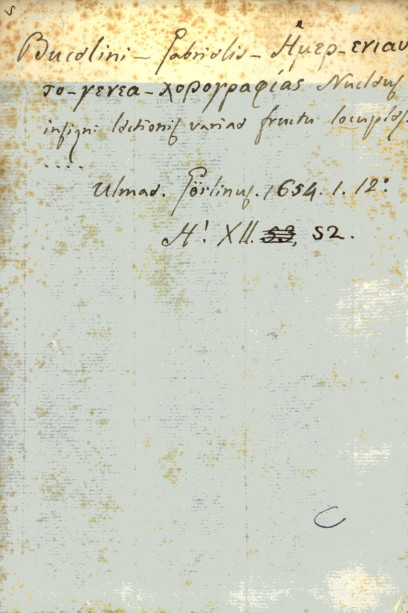 Bucelini – Gabrielis – Ἡμερ-ενιαυ
το-γενεα-χορογραφίας Nucleus
insigni lectionis variae fructu locuples.
....
Ulmae. Görlinus. 1654. 1. 12°
H! XII. 53, 52.